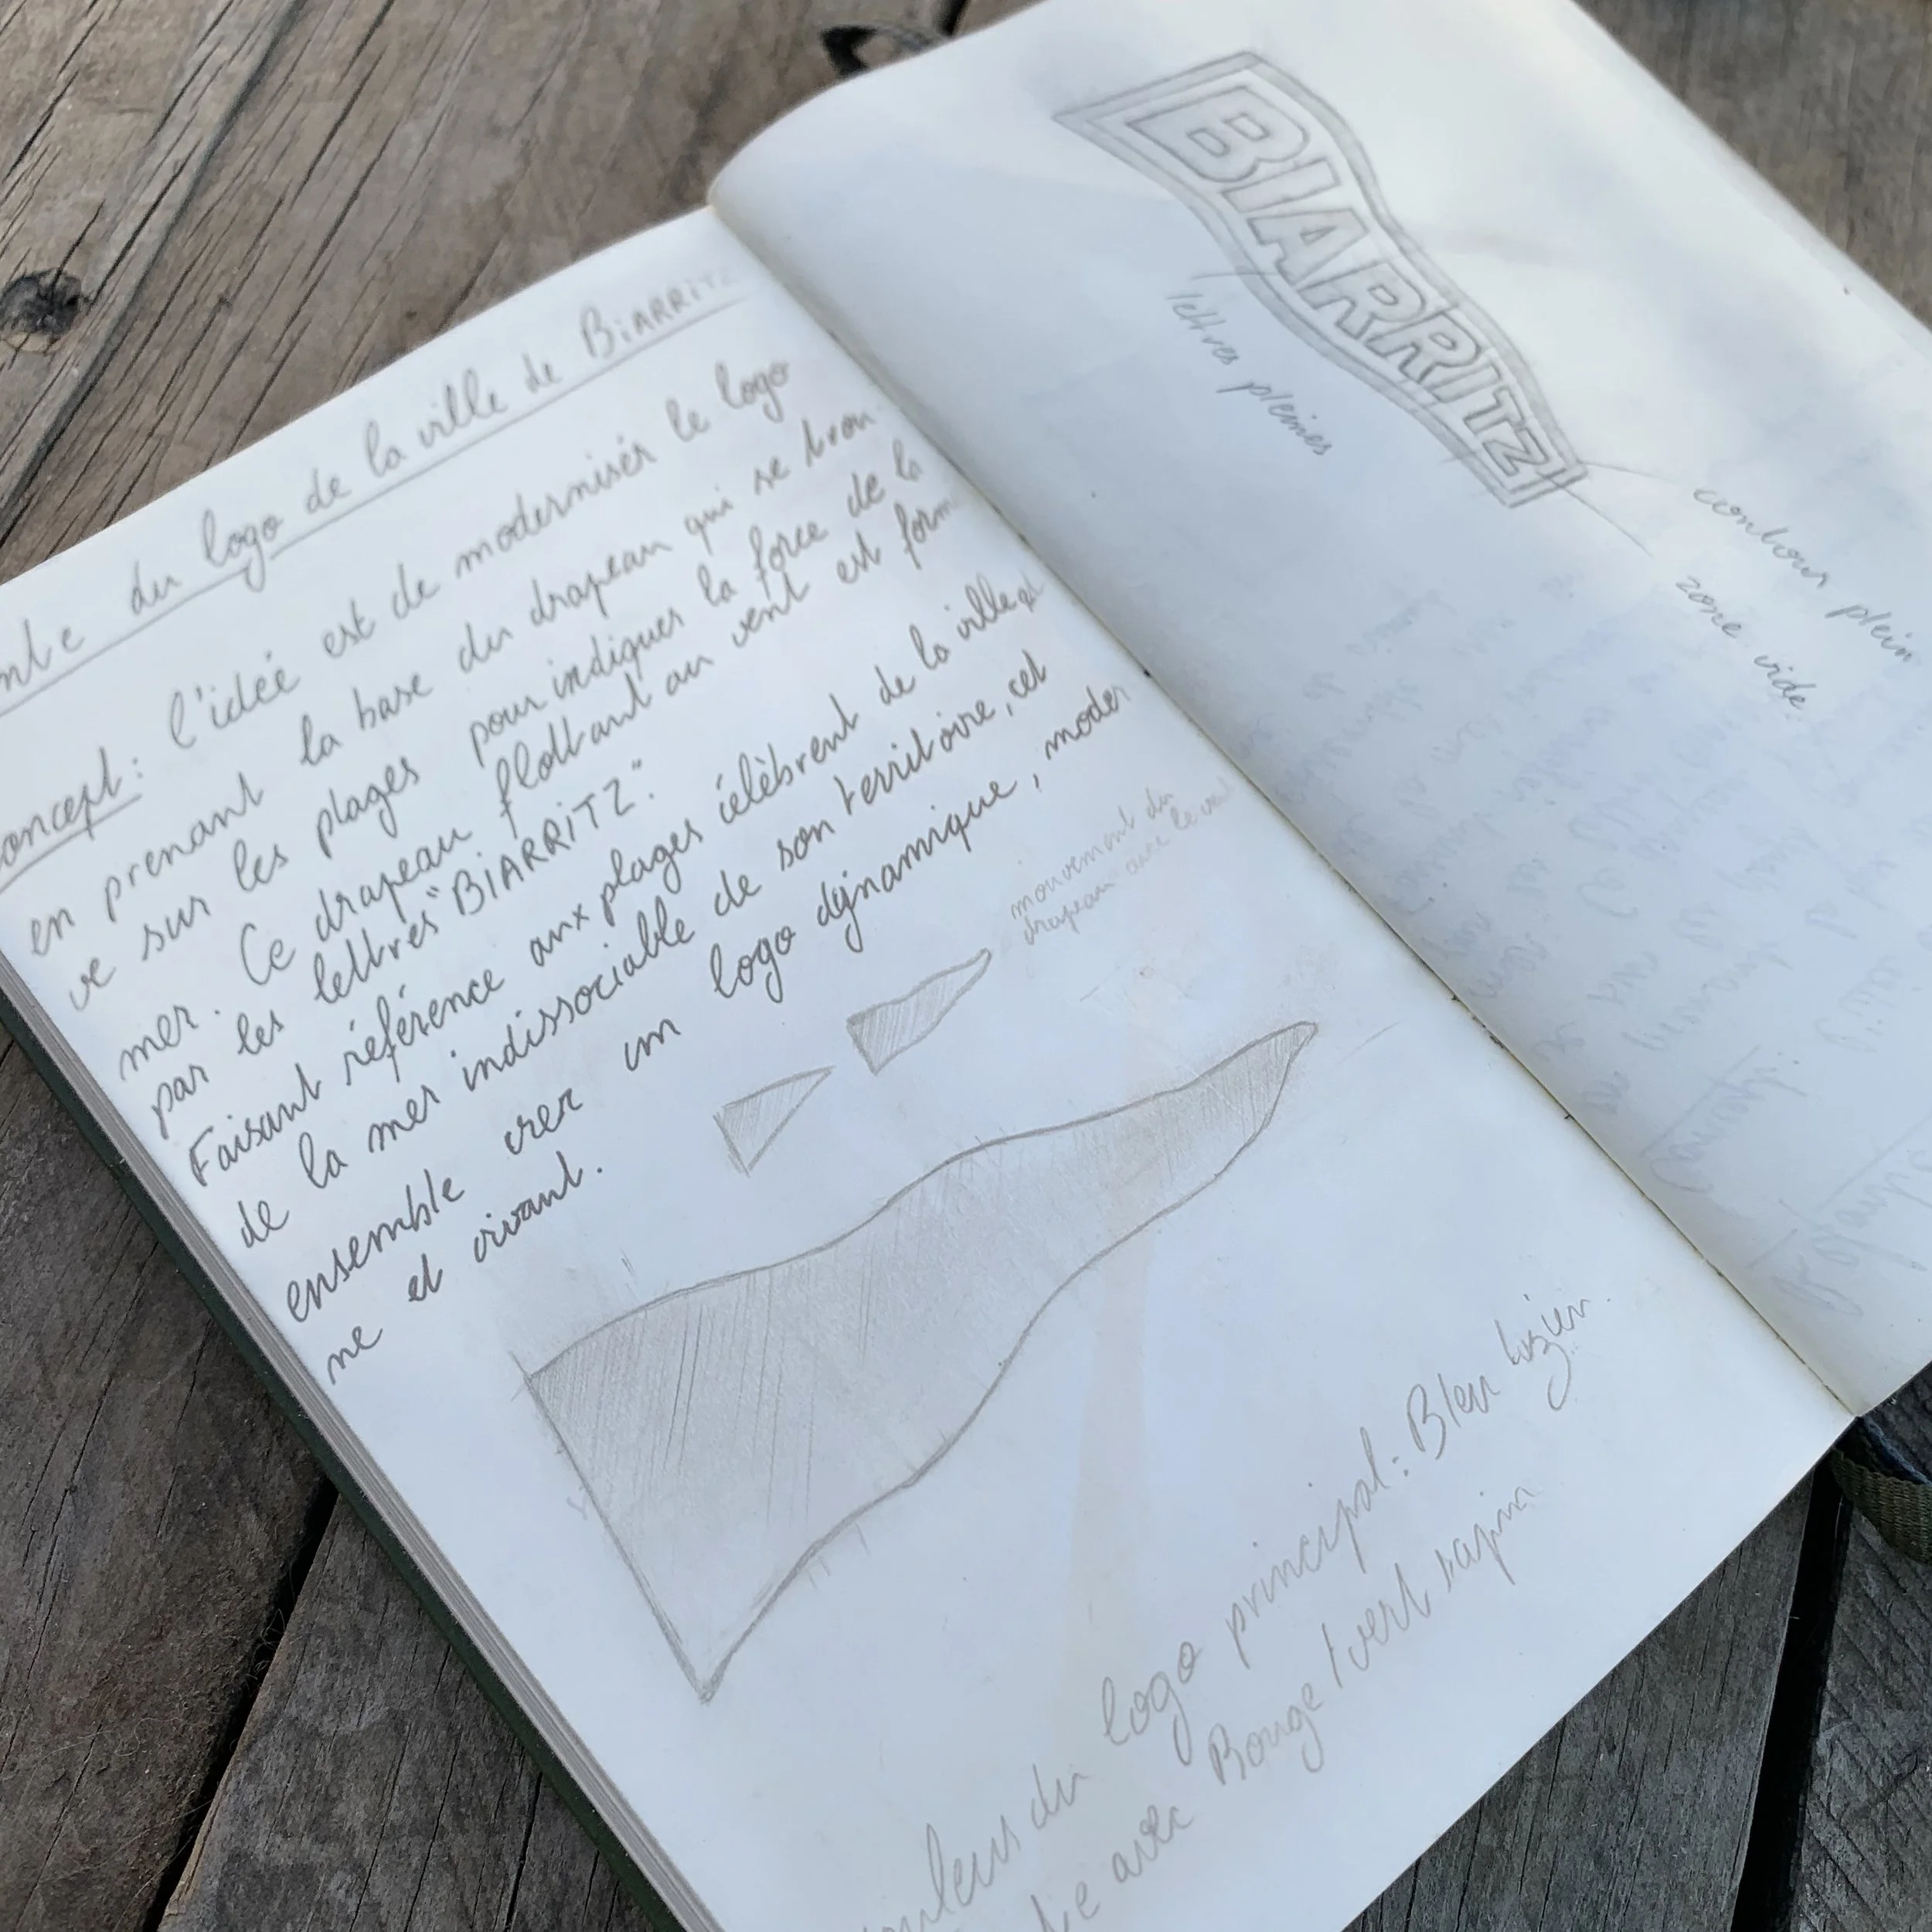 du logo de la ville de BiARRiTZ
concept: l'idéé est de modernisér le logo
en prenant la base du drapeau qui se trou
ve sur les plages pour indiquer la force de la
mer. Ce drapeau flottant au vent est form
par les lettres "BIARRITZ".
Faisant référence aux plages célèbrent de la ville et
de la mer indissociable de son territoire, cet
ensemble crer un logo dynamique, moder
ne et vivant.
mouvement du
drapeau avec le vent
du logo principal: Bleu
avec Rouge / vert sapin
BIARRITZ
lettres pleines
contour plein
zone vide